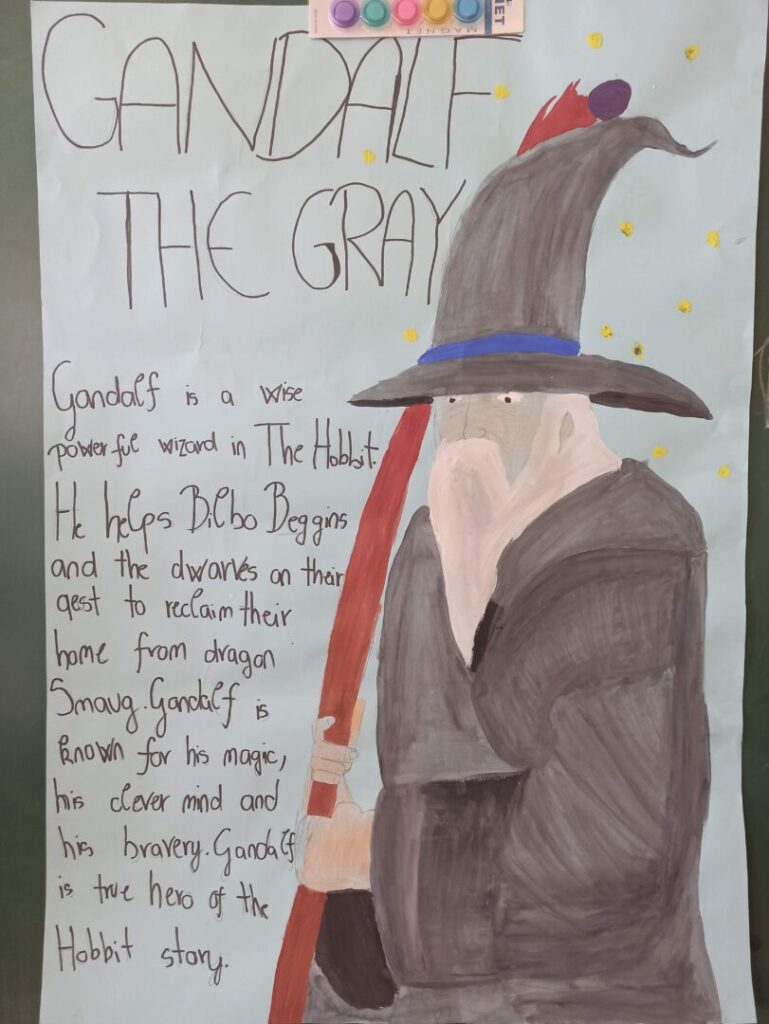 MAGNET
NET
GANDALF
THE GRAY
Gandalf is a wise
powerful wizard in The Hobbit.
He helps Bilbo Beggins
and the dwarves on their
qest to reclaim their
home from dragon
Smaug. Gandalf is
known for his magic,
his clever mind and
his bravery. Gandalf
is true hero of the
Hobbit story.